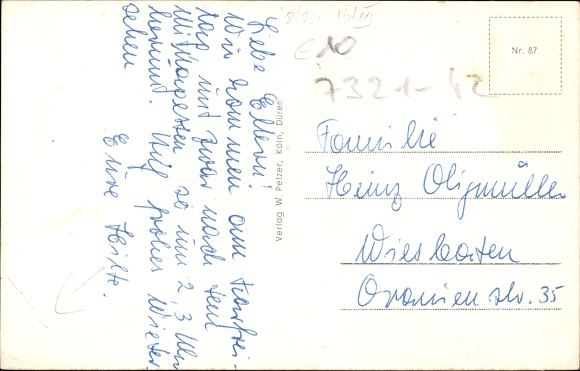 Liebe Eltern!
Wir kommen am Karfrei-
tag und zwar nach dem
Mittagessen so um 2, 3 Uhr
herum. Auf frohes Wieder-
sehen
Eure Hilte.
Verlag W. Pelzer, Köln, Düren
E10
7321-42
Nr. 87
Familie
Heinz Oligmüller
Wiesbaden
Oranienstr. 35